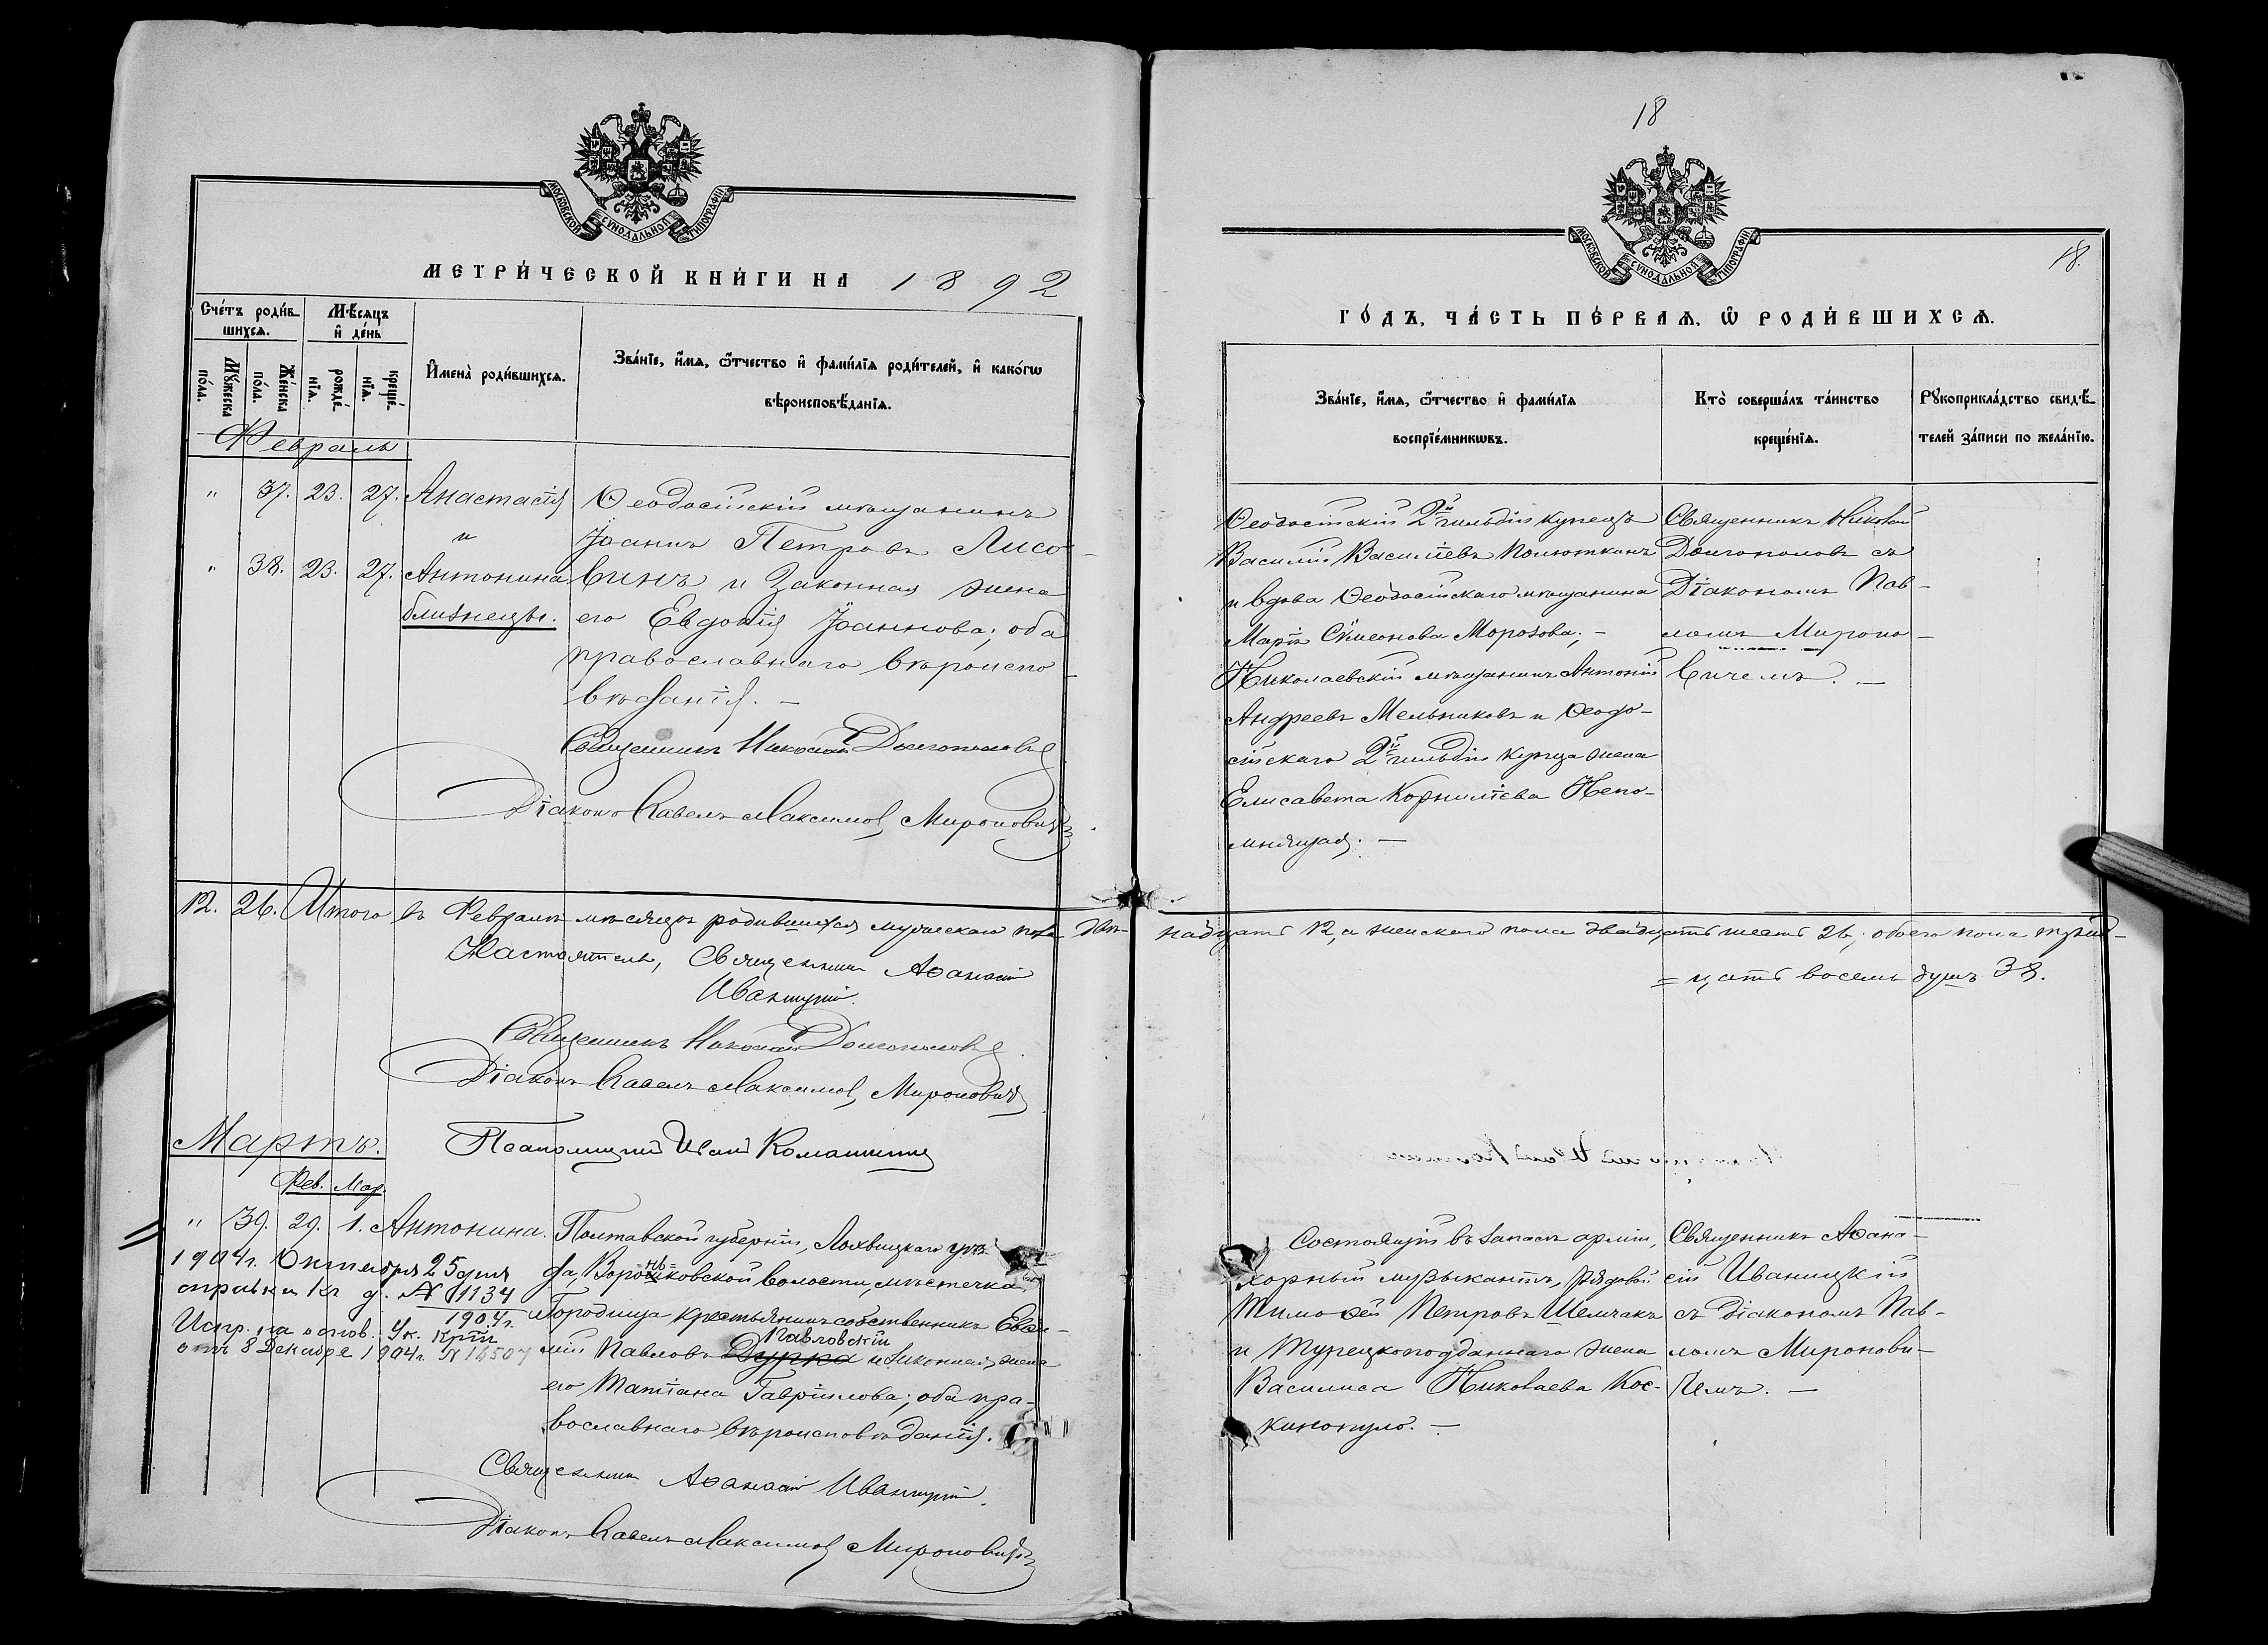 МОСКОВСКОЙ СѴНОДАЛЬНОЙ ТИПОГРАФІИ
МЕТРИ́ЧЕСКОЙ КНИ́ГИ НА 1892
Сче́тъ роди́в-
шихся.
Мѣ́сяцъ
и҆ де́нь
Мꙋ́жеска
по́ла.
Же́нска
по́ла.
рожде́-
нїѧ.
креще́-
нїѧ.
И҆мена̀ роди́вшихсѧ.
Зва́нїе, и҆́мѧ, ѻ҆́тчество и҆ фами́лїѧ роди́телей, и҆ како́гѡ
вѣроисповѣ́данїѧ.
Февраль
" 37. 23. 27. Анастасія
и
" 38. 23. 27. Антонина
близнецы.
Ѳеодосійскій мѣщанинъ
Іоаннъ Петровъ Лисо-
винъ и законная жена
его Евдокія Іоаннова; оба
православнаго вѣроиспо-
вѣданія. —
Священникъ Николай Долгополовъ
Діаконъ Павелъ Максимовъ Мироновичъ
12. 26. Итого въ Февралѣ мѣсяцѣ родившихся мужескаго пола две-
Настоятель, Священникъ Аѳанасій
Иваницкій.
Священникъ Николай Долгополовъ.
Діаконъ Павелъ Максимовъ Мироновичъ
Псаломщикъ Иванъ
Мартъ.
Фев. Мар.
" 39. 29. 1. Антонина.
Полтавской губерніи, Лохвицкаго уѣз-
да, волости, мѣстечка
Городища крестьянинъ собственникъ Евѳи-
Павловскій
мій Павловъ Дурка и законная жена
его Татіана Гавріилова; оба пра-
вославнаго вѣроисповѣданія.
1904 г. Октября 25 дня
справка къ д. № 1134
1904 г.
Испр. на основ. Ук.
отъ 8 Декабря 1904 г. № 14507
Священникъ Аѳанасій Иваницкій.
Діаконъ Павелъ Максимовъ Мироновичъ
18
МОСКОВСКОЙ СѴНОДАЛЬНОЙ ТИПОГРАФІИ
18.
ГО́ДЪ, ЧА́СТЬ ПЕ́РВАѦ, Ѽ РОДИ́ВШИХСѦ.
Зва́нїе, и҆́мѧ, ѻ҆́тчество и҆ фами́лїѧ
воспрїе́мникѡвъ.
Кто̀ соверша́лъ та́инство
креще́нїѧ.
Рꙋкоприкла́дство свидѣ́-
телей за́писи по жела́нїю.
Ѳеодосійскій 2й гильдіи купецъ
Василій Васильевъ Полюткинъ
и вдова Ѳеодосійскаго мѣщанина
Марія Сѵмеонова Морозова; —
Николаевскій мѣщанинъ Антоній
Андреевъ Мельниковъ и Ѳеодо-
сійскаго 2й гильдіи купца жена
Елисавета Корниліева Непо-
мнящая. —
Священникъ Николай
Долгополовъ съ
Діакономъ Пав-
ломъ Мироно-
вичемъ. —
надцать 12, а женскаго пола двадцать шесть 26; обоего пола трид-
= цать восемь душъ 38.
Состоящій въ запасѣ арміи,
хорный музыкантъ, рядовой
Тимоѳей Петровъ Шемчакъ
и Турецкоподданнаго жена
Василиса Николаева Кос-
кинопуло. —
Священникъ Аѳана-
сій Иваницкій
съ діакономъ Пав-
ломъ Миронови-
чемъ. —